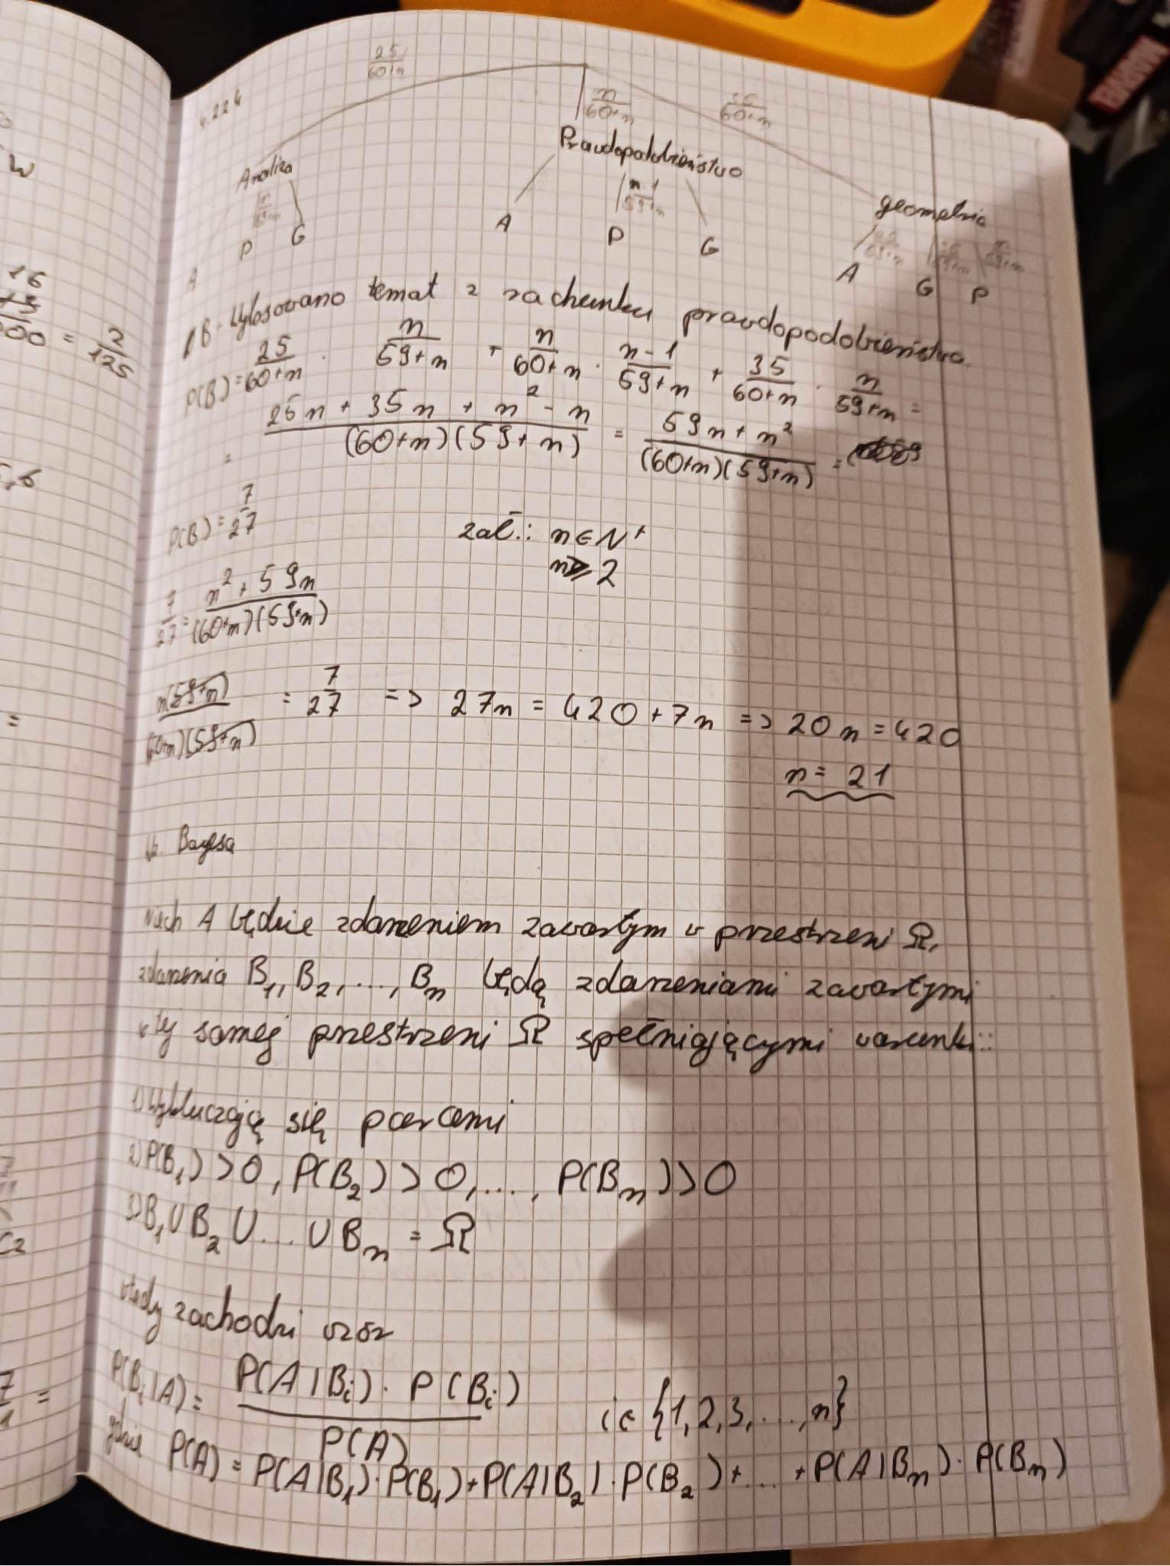 25/60+n
n/60+n 35/60+n
Analiza Prawdopodobieństwo geometria
n-1/59+n
P G A P G A G P
A
B - Wylosowano temat z rachunku prawdopodobieństwa.
P(B) = 25/60+n · n/59+n + n/60+n · n-1/59+n + 35/60+n · n/59+n =
= 25n + 35n + n² - n/(60+n)(59+n) = 59n + n²/(60+n)(59+n) =
P(B) = 7/27 zał.: n ∈ N⁺
n ≥ 2
7/27 = n² + 59n/(60+n)(59+n)
n(59+n)/(60+n)(59+n) = 7/27 => 27n = 420 + 7n => 20n = 420
n = 21
Bayesa
Niech A będzie zdarzeniem zawartym w przestrzeni Ω,
zdarzenia B₁, B₂, ..., Bₙ będą zdarzeniami zawartymi
w tej samej przestrzeni Ω spełniającymi warunki:
1) Wykluczają się parami
2) P(B₁) > 0, P(B₂) > 0, ..., P(Bₙ) > 0
3) B₁ ∪ B₂ ∪ ... ∪ Bₙ = Ω
wtedy zachodzi wzór
P(Bᵢ|A) = P(A|Bᵢ) · P(Bᵢ)/P(A) i ∈ {1, 2, 3, ..., n}
gdzie P(A) = P(A|B₁) · P(B₁) + P(A|B₂) · P(B₂) + ... + P(A|Bₙ) · P(Bₙ)